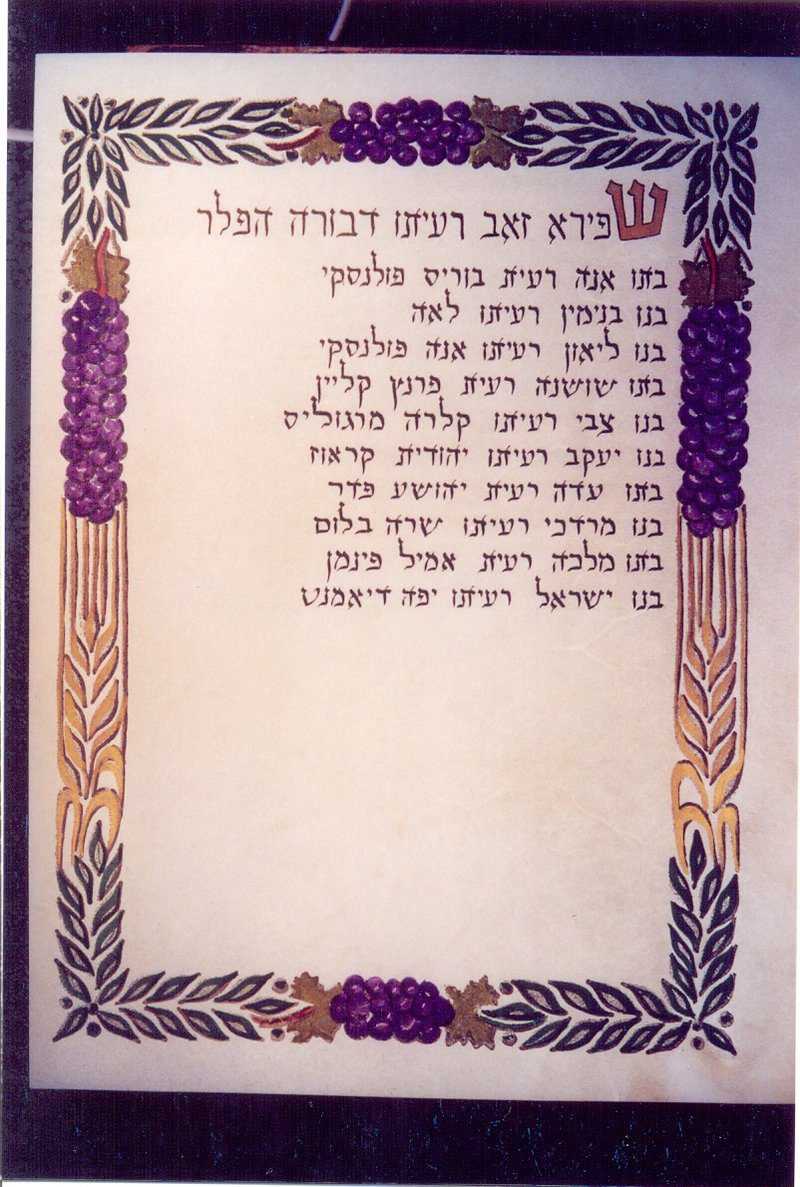 שפירא זאב רעיתו דבורה הפלר
בתו אנה רעית בוריס פולנסקי
בנו בנימין רעיתו לאה
בנו ליאון רעיתו אנה פולנסקי
בתו שושנה רעית פרנץ קליין
בנו צבי רעיתו קלרה מרגוליס
בנו יעקב רעיתו יהודית קראוז
בתו עדה רעית יהושע פדר
בנו מרדכי רעיתו שרה בלום
בתו מלכה רעית אמיל פינמן
בנו ישראל רעיתו יפה דיאמנט